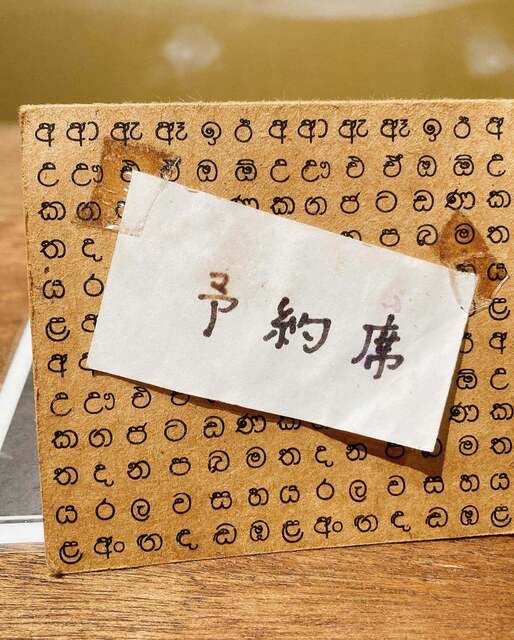 අ ආ ඇ ඈ ඉ ඊ අ ආ ඇ ඈ ඉ ඊ අ
උ ඌ එ ඒ ඔ ඕ උ ඌ එ ඒ ඔ ඕ උ
ක ග ක ග ජ ට ඩ ණ ක
ත ද ප බ ම ත
ය ර ය
ළ ළ
予約席
අ අ
උ ඌ එ ඕ උ
ක ග ජ ට ඩ ණ ණ ක
ත ද න ප බ ම ත ද න ප බ ම ත
ය ර ල ව ස හ ය ර ල ව ස හ ය
ළ අං ඟ ඳ ඬ ඹ ළ අං ඟ ඳ ඬ ඹ ළ